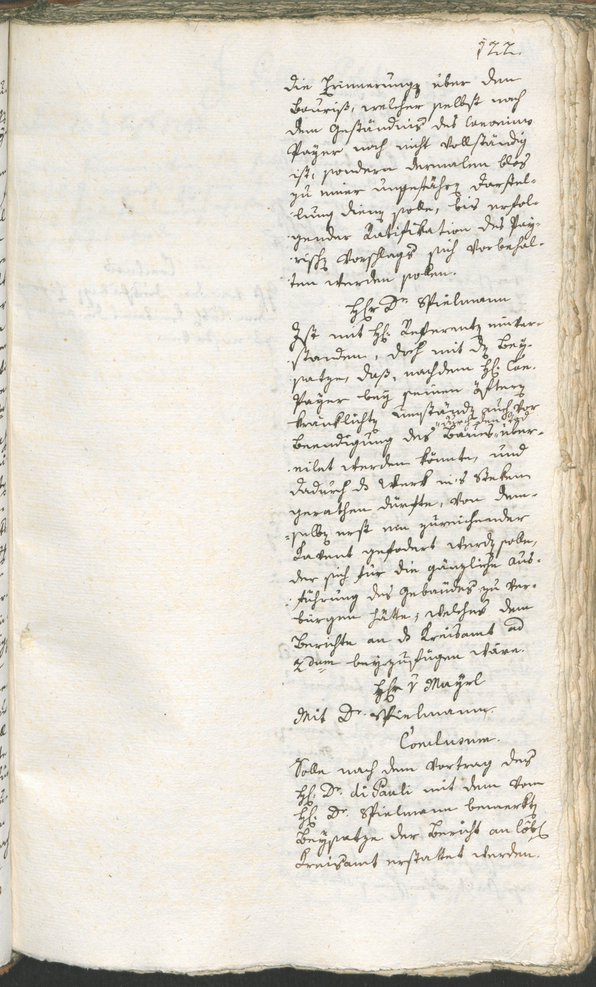 122.
die Erinnerung über den
Bauriß, welcher selbst nach
dem Geständnis des Canonimus
Payer noch nicht vollständig
ist, sondern dermalen blos
zu einer ungefähren Darstel-
lung dienen solle, bis erfol-
gender Ratifikation des Pay-
rischen Vorschlags sich vorbehal-
ten werden sollen.
Hr Dr. Spielmann
Ist mit H. Referenten einver-
standen, doch mit dem Bey-
satze, daß, nachdem H. Can.
Payer bey seinen öftern
kränklichen Umständen auch vor
Beendigung des Baues über-
eilet werden könnte, und
dadurch das Werk ins Steken
gerathen dürfte, von dem-
selben erst ein zureichender
Kavent gefodert werden solle,
der sich für die gänzliche Aus-
führung des Gebäudes zu ver-
bürgen hätte, welches dem
Berichte an das Kreisamt ad
2dum beyzufügen wäre.
Hr v Mayrl
Mit Dr. Spielmann.
Conclusum.
Solle nach dem Vortrag des
H. Dr. di Pauli mit dem vom
H. Dr. Spielmann bemerkten
Beysatze der Bericht an löbl.
Kreisamt erstattet werden.